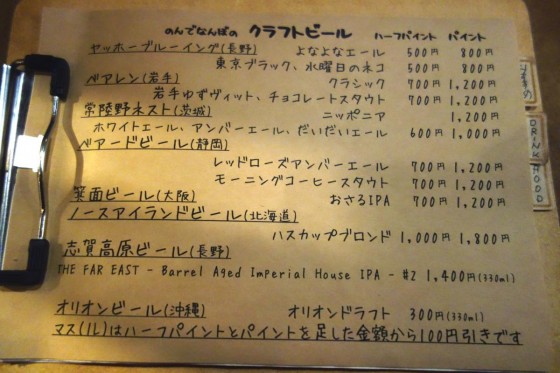 のんでなんぼの クラフトビール ハーフパイント パイント
ヤッホーブルーイング(長野) よなよなエール 500円 800円
東京ブラック、水曜日のネコ 500円 800円
ベアレン(岩手) クラシック 700円 1,200円
岩手ゆずヴィット、チョコレートスタウト 700円 1,200円
常陸野ネスト(茨城) ニッポニア 1,200円
ホワイトエール、アンバーエール、だいだいエール 600円 1,000円
ベアードビール(静岡)
レッドローズアンバーエール 700円 1,200円
モーニングコーヒースタウト 700円 1,200円
箕面ビール(大阪) おさるIPA 700円 1,200円
ノースアイランドビール(北海道)
ハスカップブロンド 1,000円 1,800円
志賀高原ビール(長野)
THE FAR EAST - Barrel Aged Imperial House IPA - #2 1,400円(330ml)
オリオンビール(沖縄) オリオンドラフト 300円(330ml)
マス(1L)はハーフパイントとパイントを足した金額から100円引きです
DRINK
FOOD